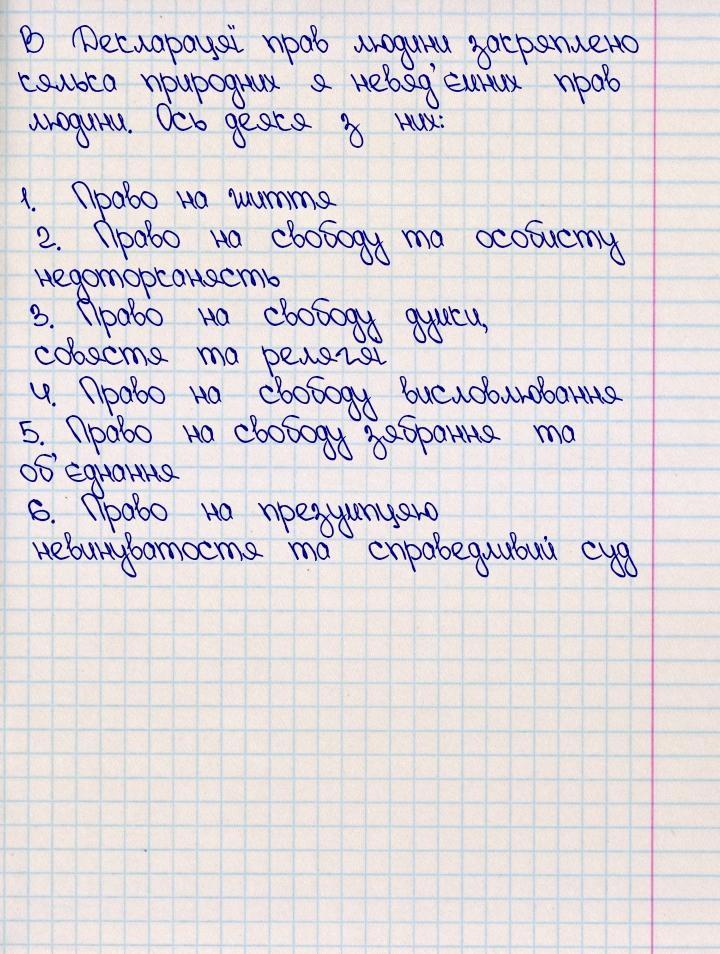 В Декларацяї прав людини закряплено
кялька природних я невяд'ємних прав
людини. Ось деякя з них:
1. Право на життя
2. Право на свободу та особисту
недоторканясть
3. Право на свободу думки,
совястя та релягяї
4. Право на свободу висловлювання
5. Право на свободу зябрання та
об'єднання
6. Право на презумпцяю
невинуватостя та справедливий суд